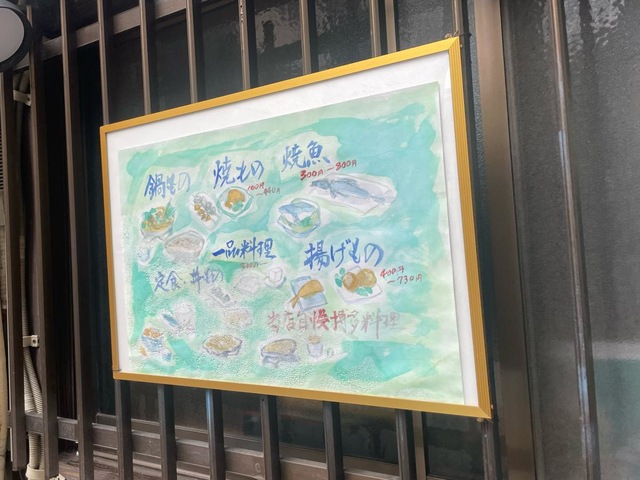 鍋もの
焼もの
160円
〜440円
焼魚
300円〜800円
一品料理
揚げもの
400円
〜730円
定食・丼もの
当店自慢博多料理